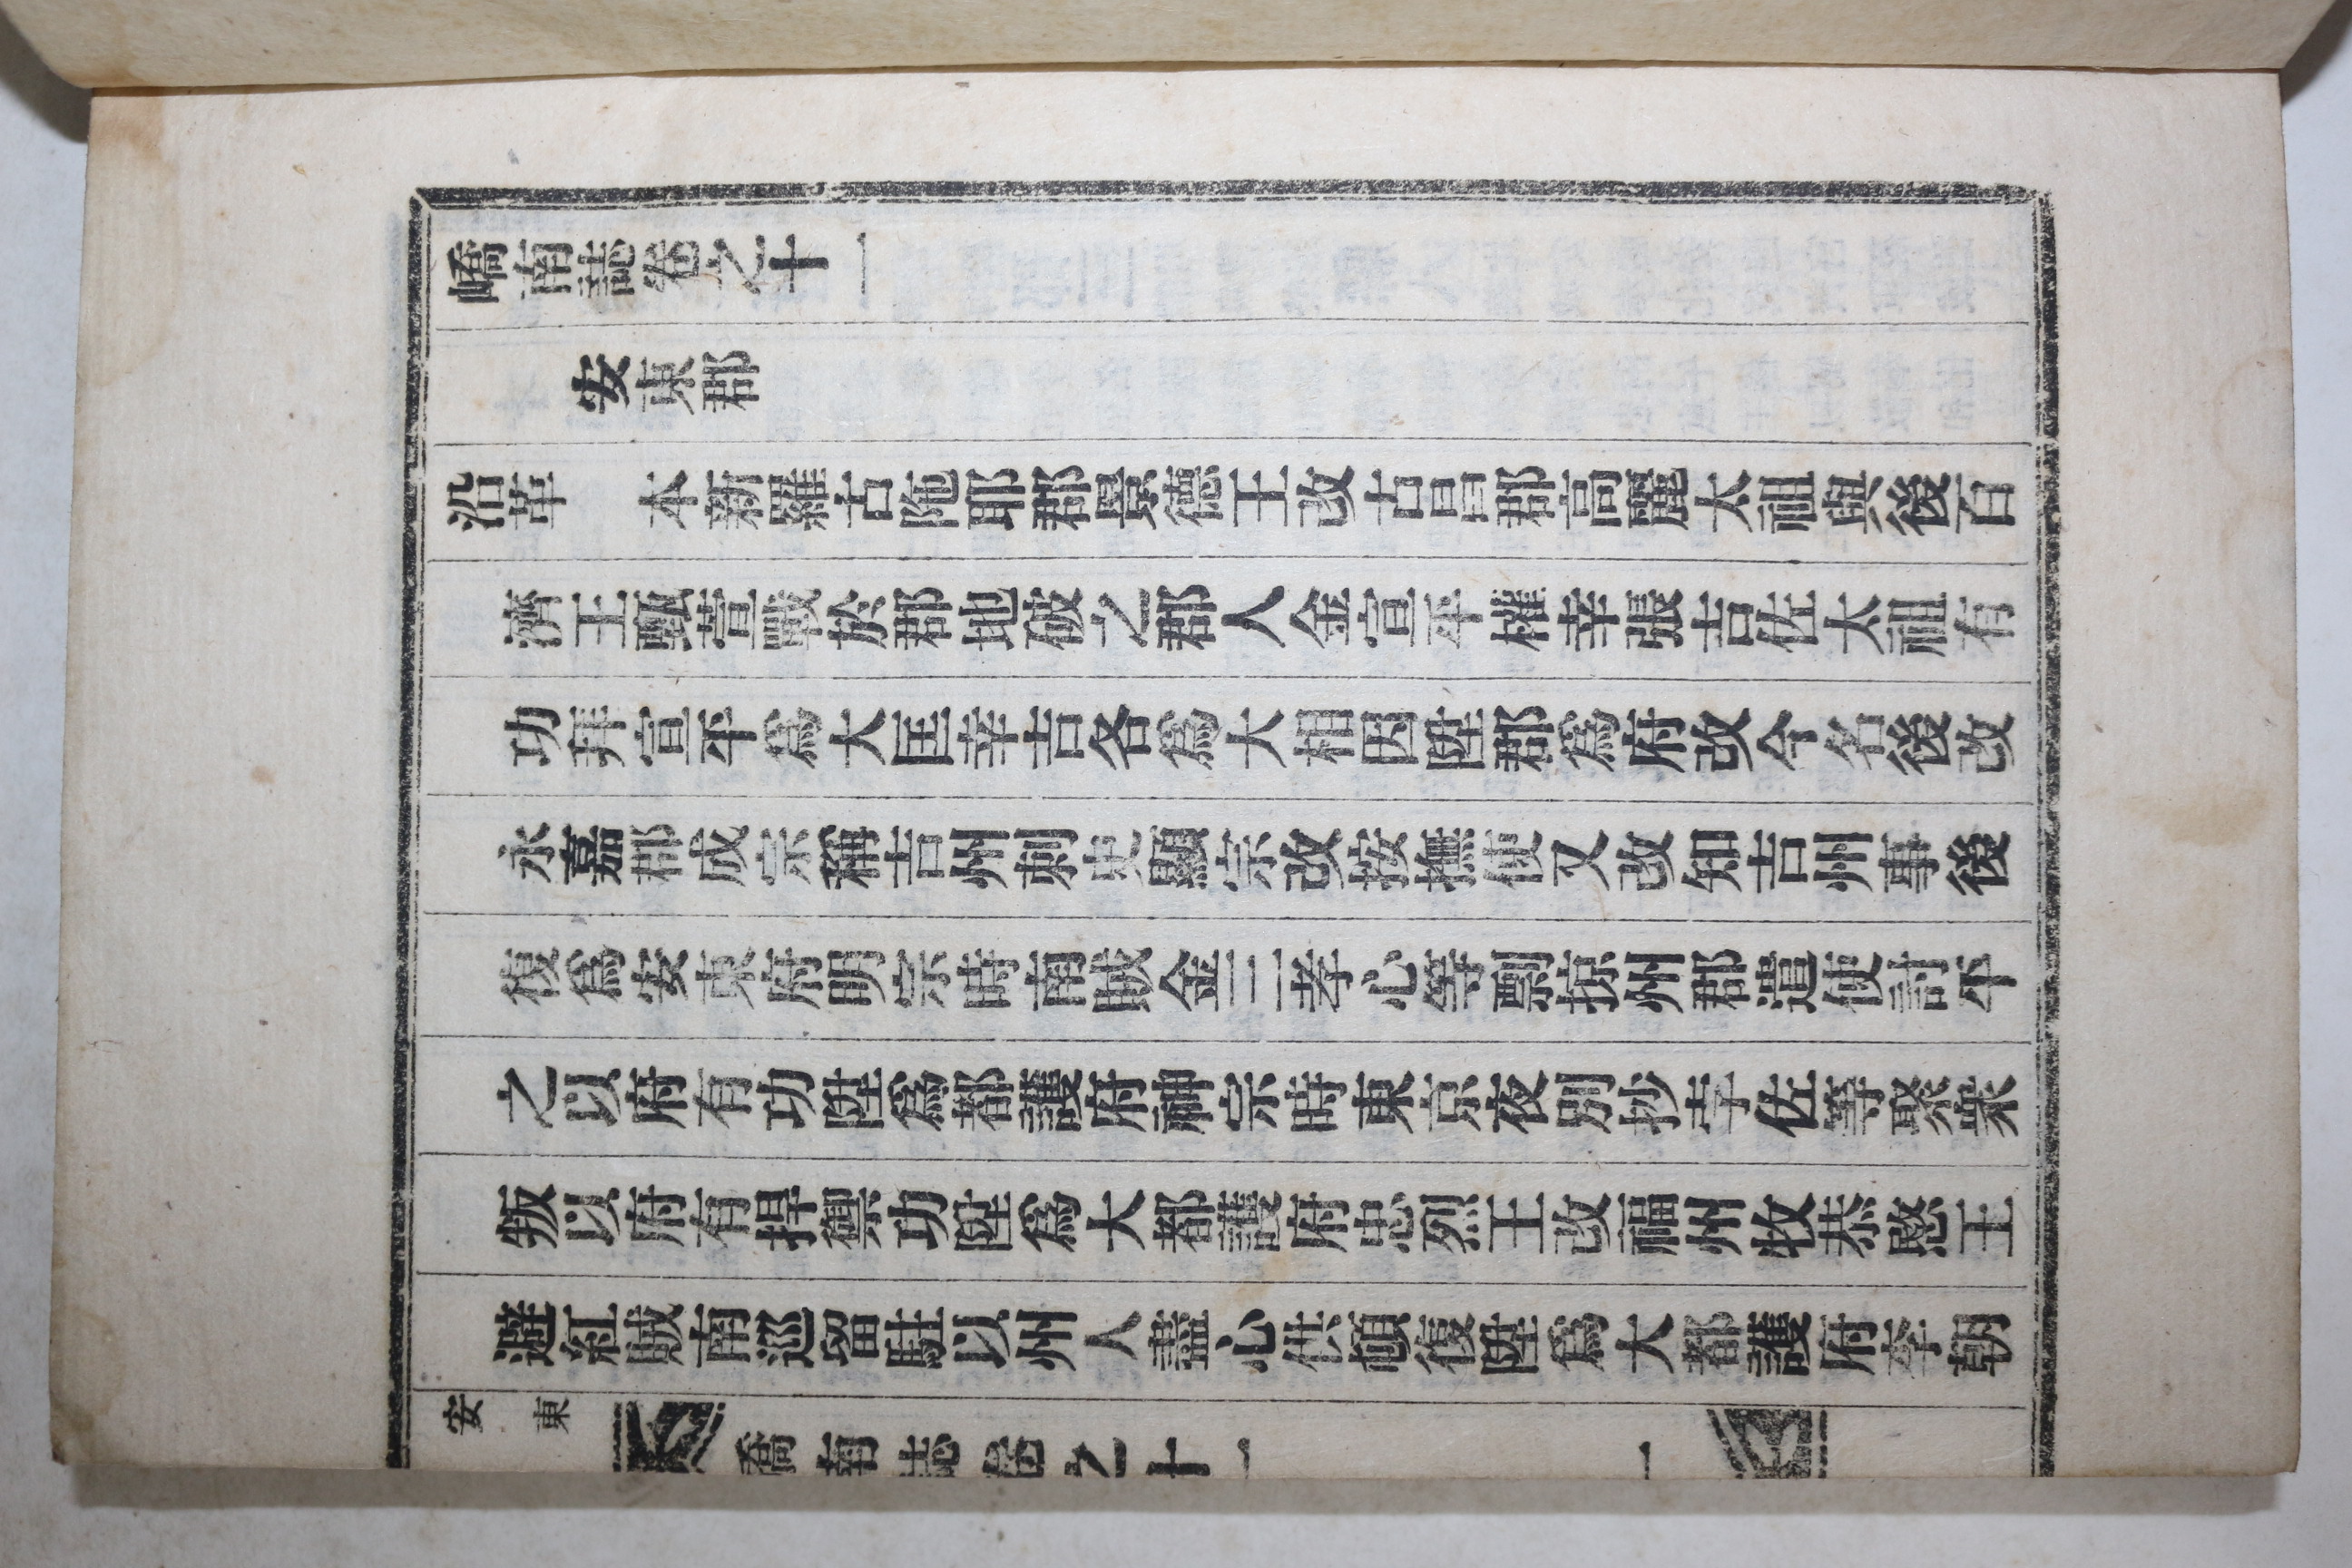 嶠南誌卷之十一
安東郡
沿革　本新羅古陁耶郡景德王改古昌郡高麗太祖與後百
濟王甄萱戰於郡地破之郡人金宣平權幸張吉佐太祖有
功拜宣平爲大匡幸吉各爲大相因陞郡爲府改今名後改
永嘉郡成宗稱吉州刺史顯宗改按撫使又改知吉州事後
復爲安東府明宗時南賊金三孝心等剽掠州郡遣使討平
之以府有功陞爲都護府神宗時東京夜別抄孛佐等聚衆
叛以府有捍禦功陞爲大都護府忠烈王改福州牧恭愍王
避紅賊南巡留駐以州人盡心供頓復陞爲大都護府李朝
安東
嶠南誌卷之十一
一